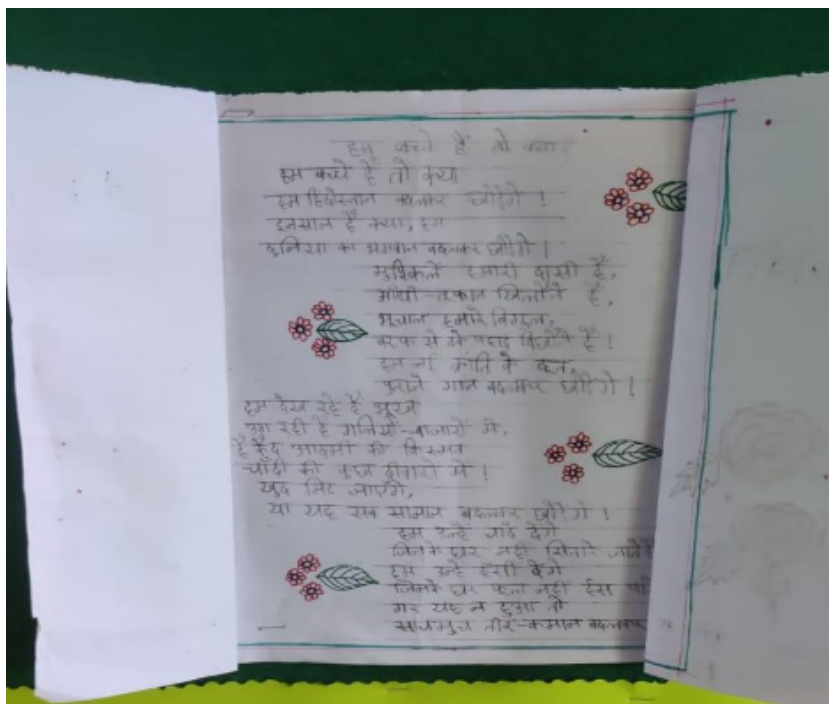 हम बच्चे हैं तो क्या?
हम बच्चे हैं तो क्या
हम हिंदोस्तान बदलकर छोड़ेंगे !
इनसान है क्या, हम
दुनिया का भगवान बदलकर छोड़ेंगे !
मुश्किलें हमारी दासी हैं,
आँधी-तूफान खिलौने हैं,
भूचाल हमारे बिगुल,
बरफ से ढके पहाड़ बिछौने हैं !
हम नई क्रांति के दूत,
पुराने गान बदलकर छोड़ेंगे !
हम देख रहे हैं भूख
उग रही है गलियों-बाजारों में,
है कैद आदमी की किस्मत
चाँदी की कुछ दीवारों में !
खुद मिट जाएँगे,
या यह सब सामान बदलकर छोड़ेंगे !
हम उन्हें चाँद देंगे
जिनके घर नहीं सितारे जाते
हम उन्हें हँसी देंगे
जिनके घर फूल नहीं हँस
गर यह न हुआ तो
सचमुच तीर-कमान बदलकर